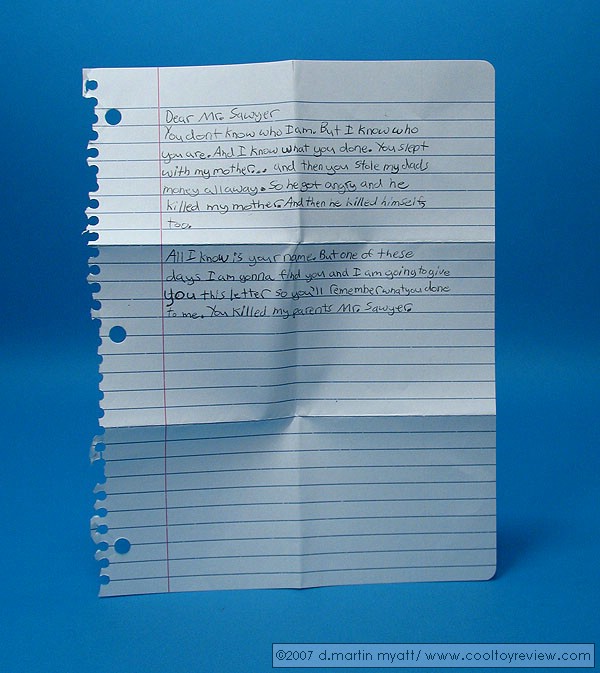 Dear Mr. Sawyer
You dont know who I am. But I know who
you are. And I know what you done. You slept
with my mother.. and then you stole my dads
money all away. So he got angry and he
killed my mother. And then he killed himself,
too.
All I know is your name. But one of these
days I am gonna find you and I am going to give
you this letter so you'll remember what you done
to me. You killed my parents Mr. Sawyer.
©2007 d.martin myatt/ www.cooltoyreview.com